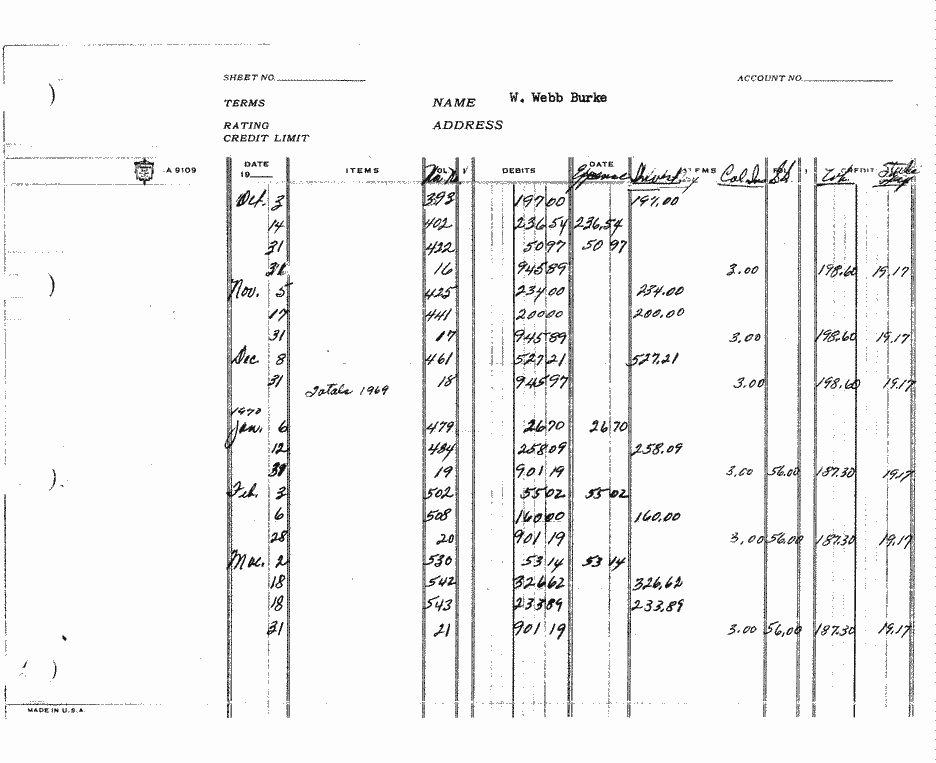 SHEET NO. ACCOUNT NO.
TERMS NAME W. Webb Burke
RATING ADDRESS
CREDIT LIMIT
A 9109 DATE ITEMS DEBITS DATE
19 Expense Col In
Oct. 3 393 197 00 197.00
14 402 236 54 236.54
31 422 50 97 50 97
31 16 945 89 3.00 198.60 19.17
Nov. 5 425 234 00 234.00
17 441 200 00 200.00
31 17 945 89 3.00 198.60 19.17
Dec 8 461 527 21 527.21
31 Totals 1969 18 945 97 3.00 198.60 19.17
1970
Jan. 6 479 26 70 26 70
12 484 258 09 258.09
31 19 901 19 3.00 56.00 187.30 19.17
Feb. 3 502 55 02 55 02
6 508 160 00 160.00
28 20 901 19 3.00 56.00 187.30 19.17
Mar. 2 530 53 14 53 14
18 542 326 62 326.62
18 543 233 89 233.89
31 21 901 19 3.00 56.00 187.30 19.17
MADE IN U.S.A.